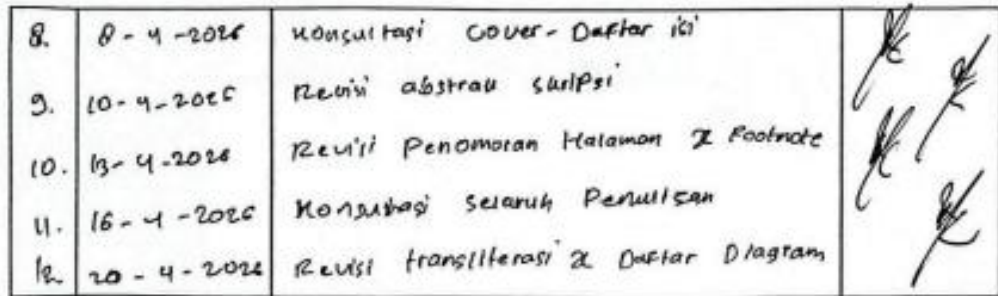 8. 8-4-2026 Konsultasi Cover-Daftar isi
9. 10-4-2026 Revisi abstrak skripsi
10. 13-4-2026 Revisi Penomoran Halaman & Footnote
11. 16-4-2026 Konsultasi Seluruh Penulisan
12. 20-4-2026 Revisi transliterasi & Daftar Diagram